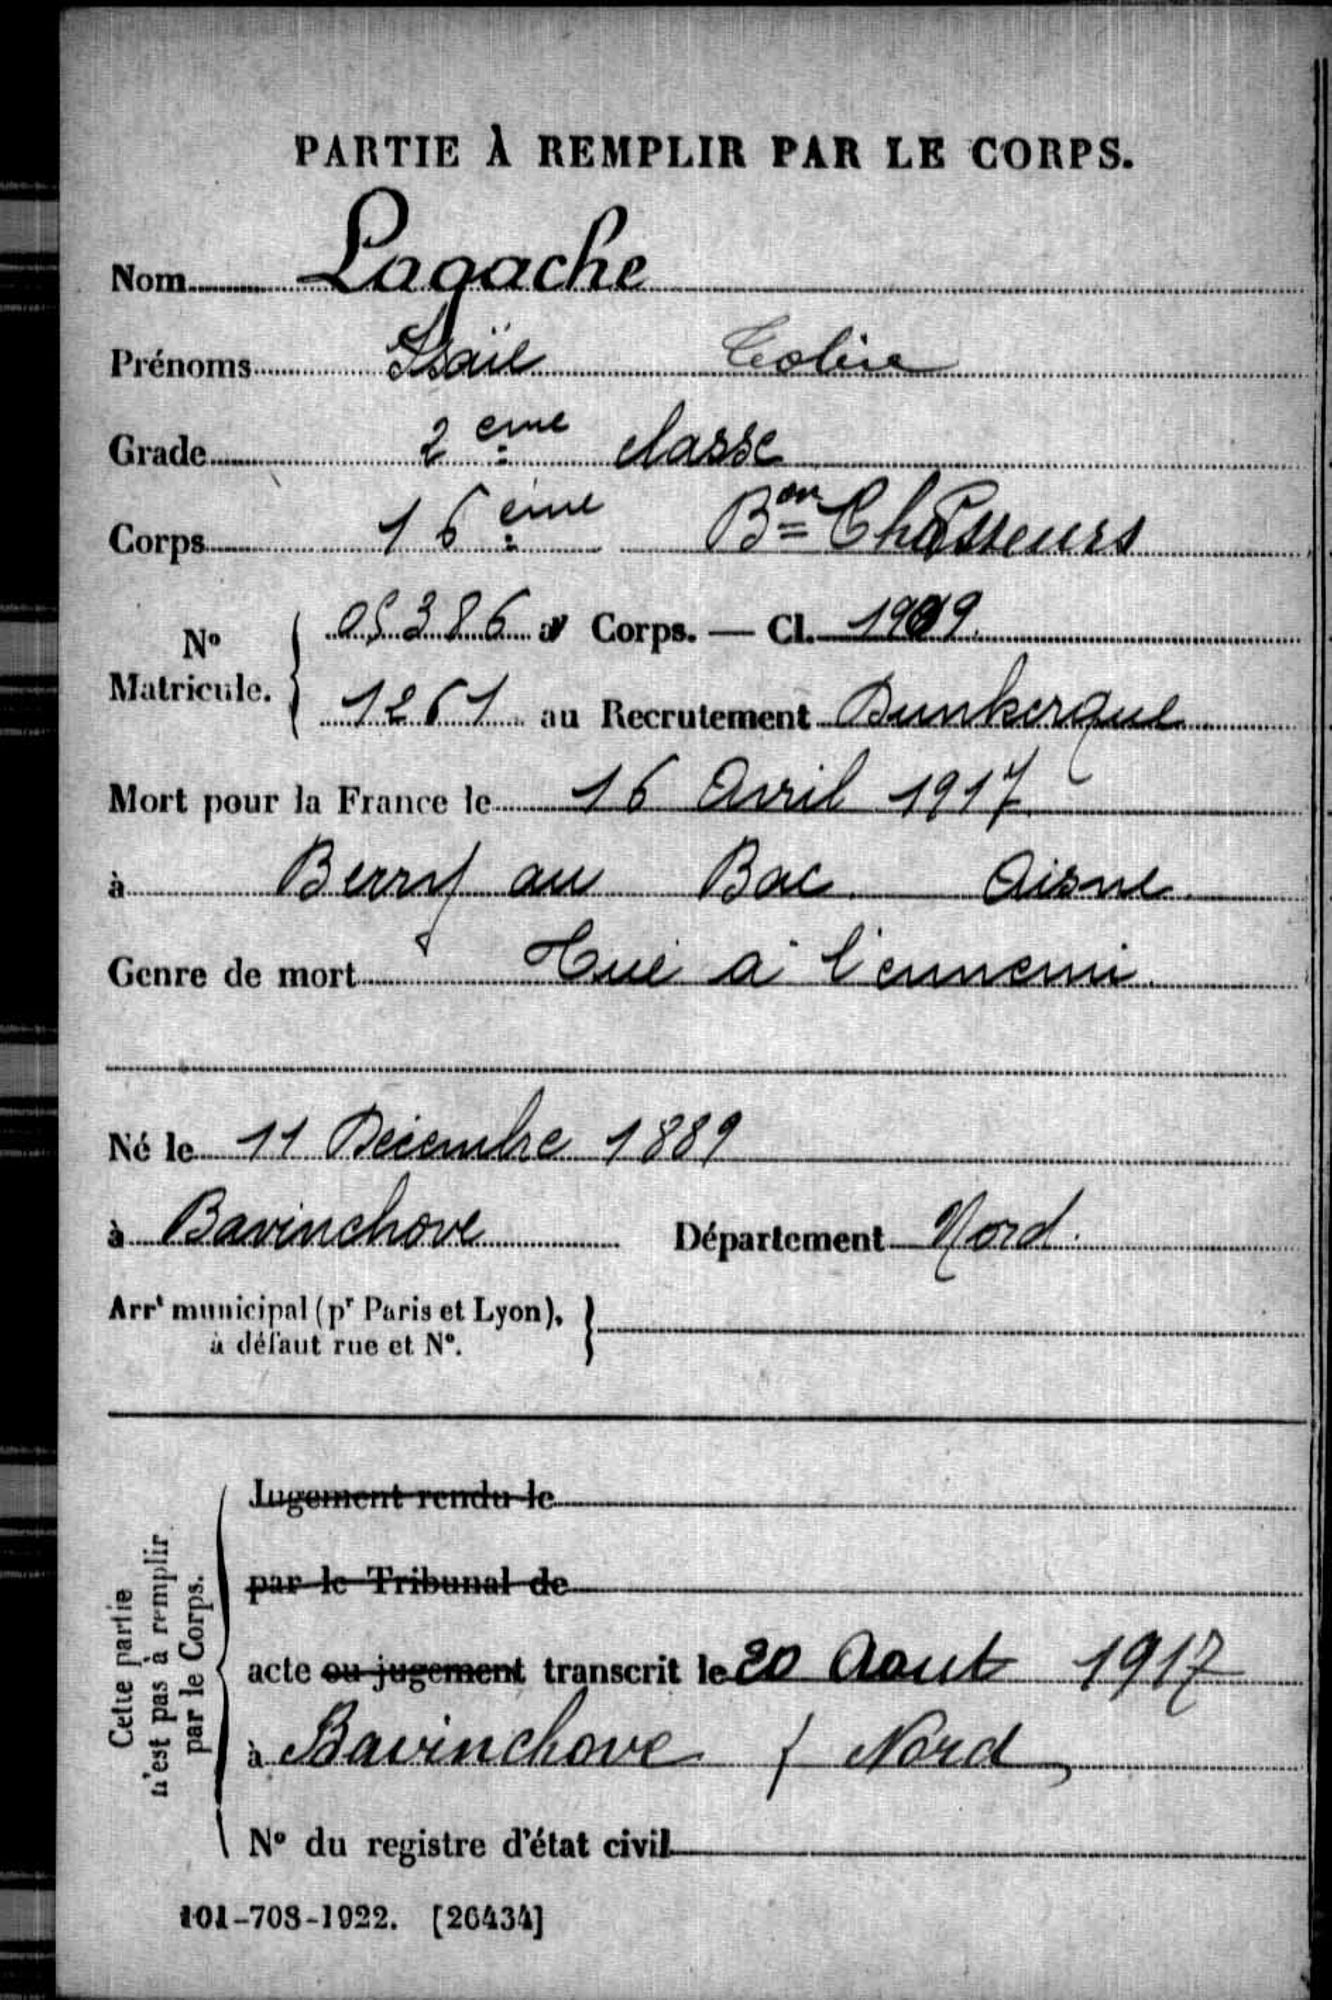 PARTIE À REMPLIR PAR LE CORPS.
Nom Lagache
Prénoms Isaïe
Grade 2 eme classe
Corps 16 ème Bon Chasseurs
No Matricule. 05386 au Corps. — Cl. 1909
1261 au Recrutement Dunkerque
Mort pour la France le 16 Avril 1917
à Berry au Bac. Aisne.
Genre de mort Tué à l'ennemi.
Né le 11 Décembre 1889
à Bavinchove Département Nord.
Arrt municipal (pr Paris et Lyon),
à défaut rue et No.
Cette partie
n'est pas à remplir
par le Corps.
Jugement rendu le
par le Tribunal de
acte ou jugement transcrit le 20 Aout 1917
à Bavinchove ( Nord
No du registre d'état civil
101-708-1922. [26434]